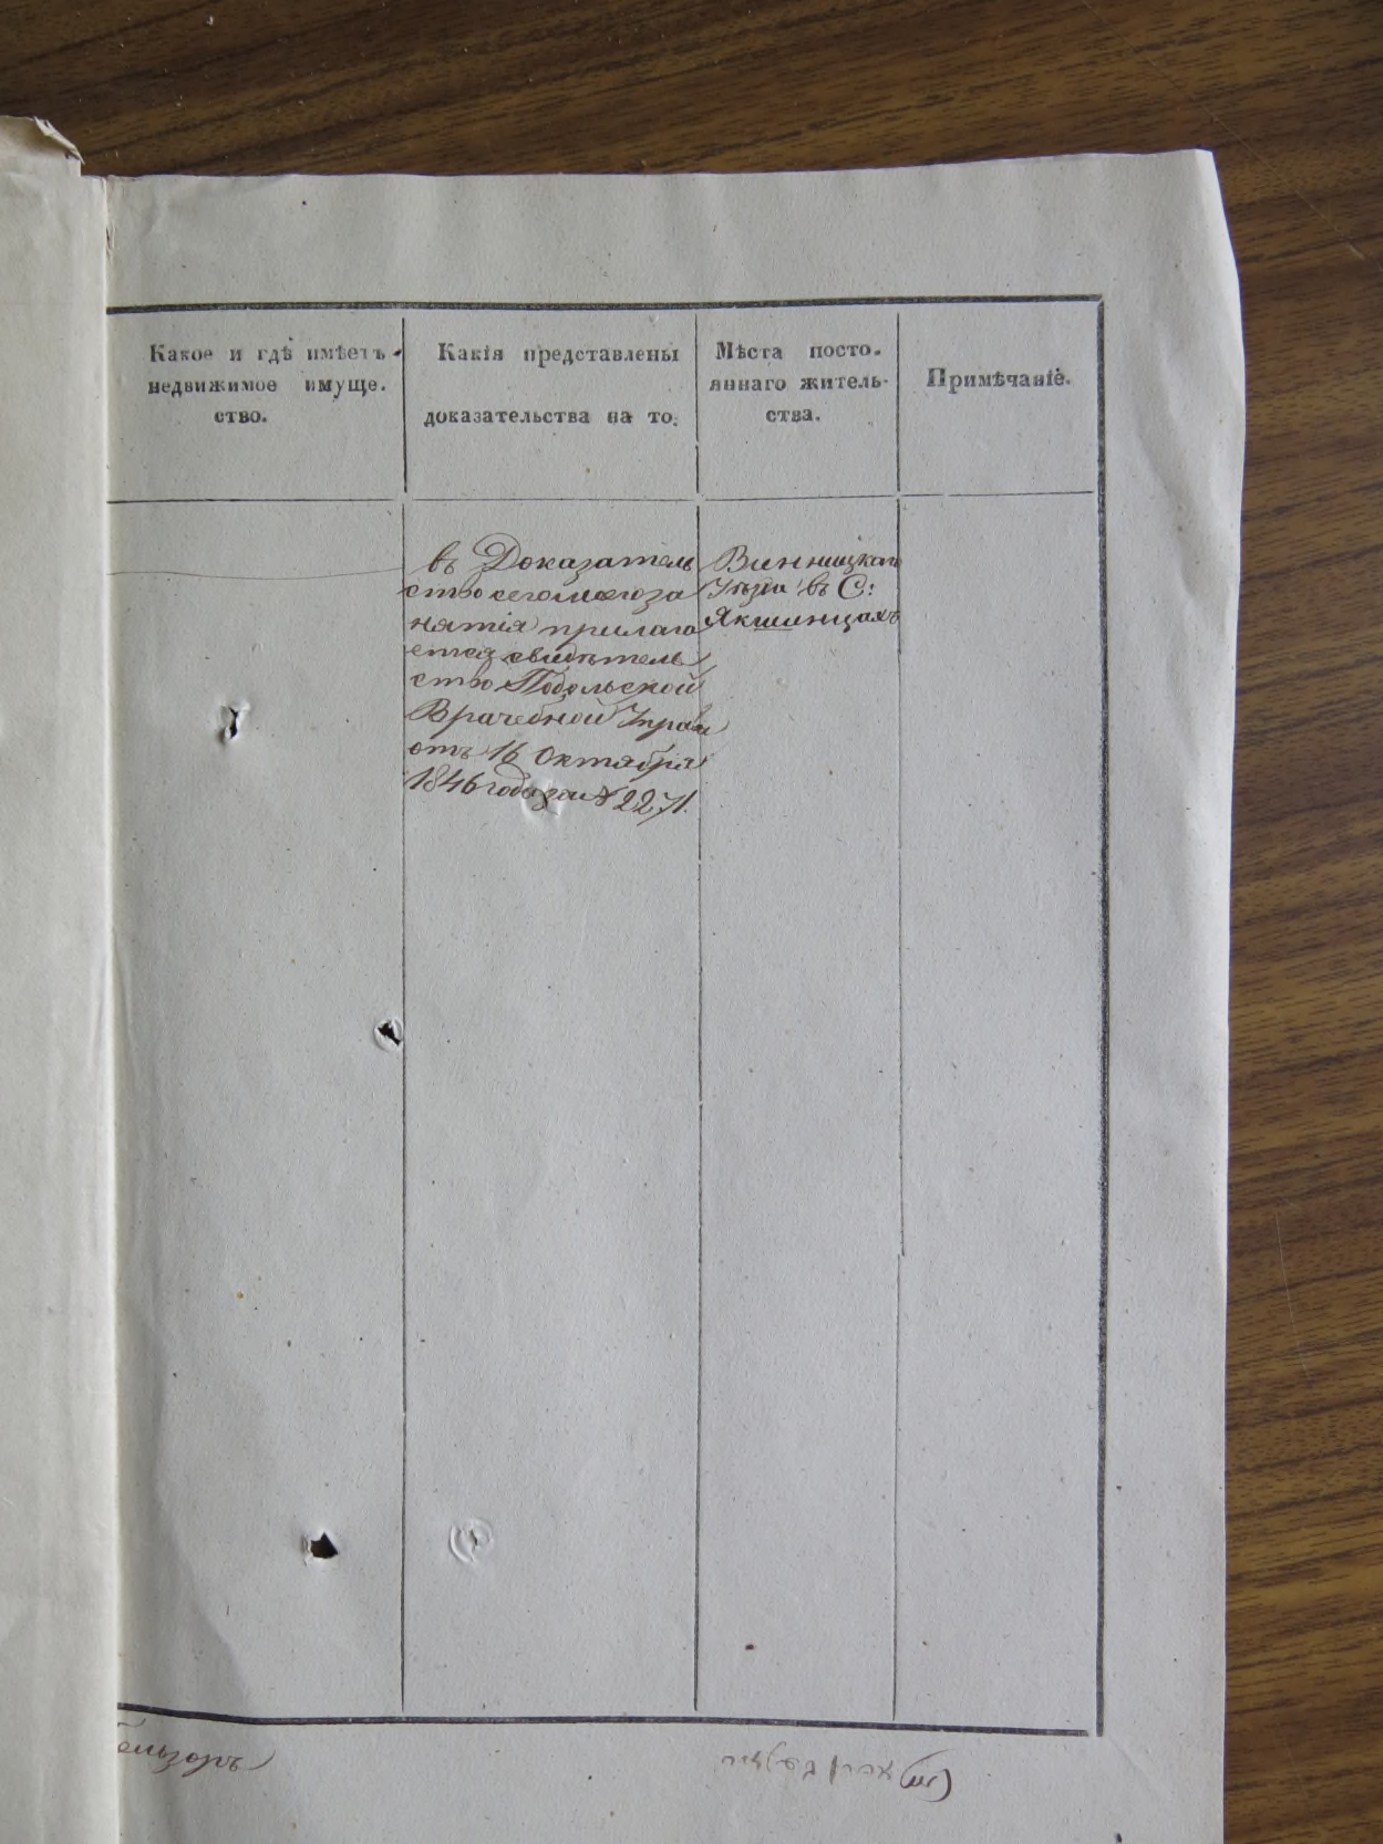 Какое и гдѣ имѣетъ
недвижимое имуще-
ство.
Какія представлены
доказательства на то.
Мѣста посто-
яннаго житель-
ства.
Примѣчаніе.
въ Доказатель
ство сего моего за
нятія прилага
ется свидѣтель
ство Подольской
Врачебной Управы
отъ 16 Октября
1846 года за № 2271.
Винницкаго
Уѣзда въ С:
Якшинцахъ